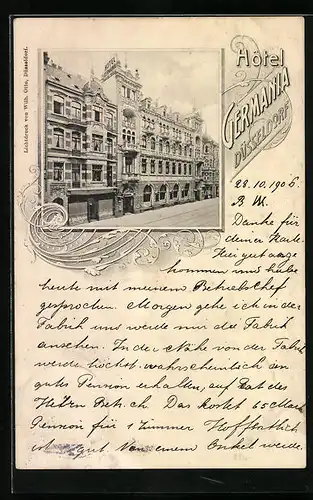 Lichtdruck von Wilh. Otto, Düsseldorf.
Hôtel
GERMANIA
DÜSSELDORF
28.10.1906.
Danke für
deine Karte.
Hier gut ange
kommen und habe
heute mit meinem Betriebschef
gesprochen. Morgen gehe ich in der
Fabrik und werde mir die Fabrik
ansehen. In der Nähe von der Fabrik
werde höchst wahrscheinlich ein
gutes Pension erhalten, auf Rat des
Herrn Betr. ch. Das kostet 65 Mark
Pension für 1 Zimmer Hoffentlich
ist gut